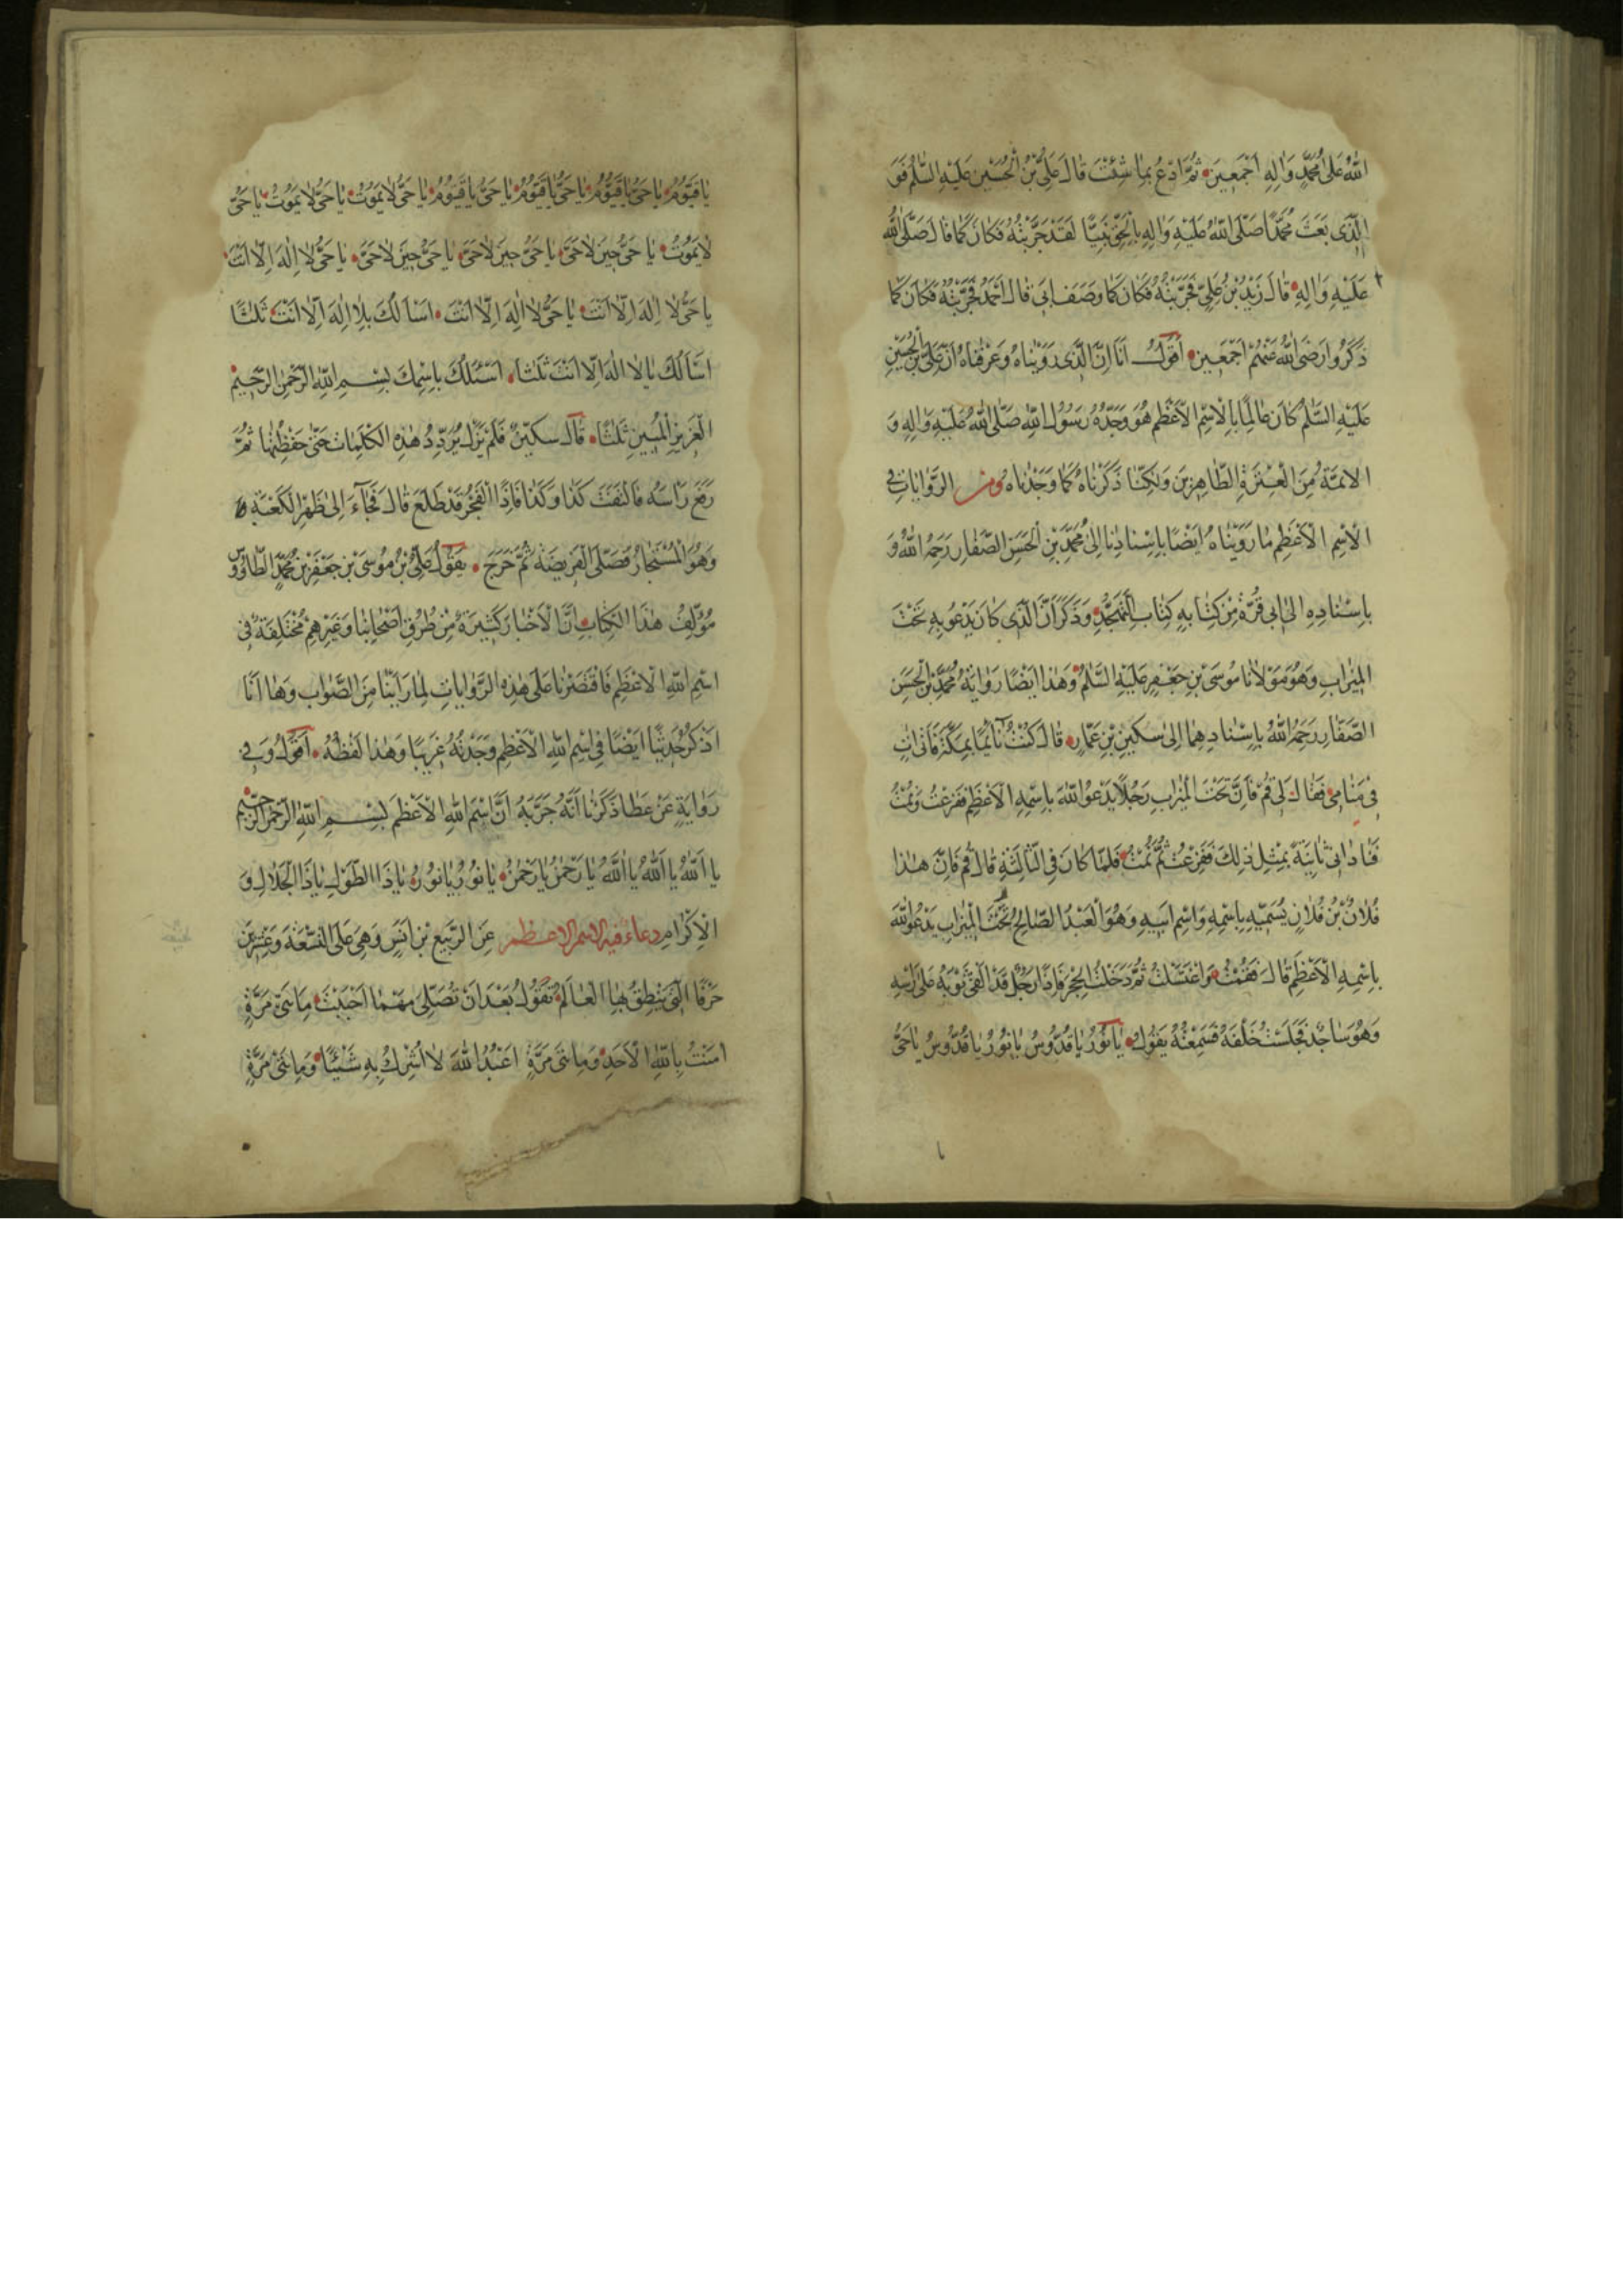 اللهُ عَلىٰ مُحَمَّدٍ وَاٰلِهِ اَجْمَعِينَ ثُمَّ ادْعُ بِمٰا شِئْتَ قٰالَ عَلِيُّ بْنُ الْحُسَيْنِ عَلَيْهِ السَّلٰمُ فَوَ
الَّذى بَعَثَ مُحَمَّدًا صَلَّى اللهُ عَلَيْهِ وَاٰلِهِ بِالْحَقِّ نَبِيًّا لَقَدْ جَرَّبْتُهُ فَكٰانَ كَمٰا قٰالَ صَلَّى اللهُ
عَلَيْهِ وَاٰلِهِ قٰالَ زَيْدُ بْنُ عَلِيٍّ فَجَرَّبْتُهُ فَكٰانَ كَمٰا وَصَفَ اَبى قٰالَ اَحْمَدُ فَجَرَّبْتُهُ فَكٰانَ كَمٰا
ذَكَرُوا رَضِىَ اللهُ عَنْهُمْ اَجْمَعينَ اَقُولُ اَنَا اِنَّ الَّذى رَوَيْنٰاهُ وَعَرَفْنٰاهُ اَنَّ عَلِيَّ بْنَ الْحُسَيْنِ
عَلَيْهِ السَّلٰمُ كٰانَ عٰالِمًا بِالْاِسْمِ الْاَعْظَمِ هُوَ وَجَدُّهُ رَسُولُ اللهِ صَلَّى اللهُ عَلَيْهِ وَاٰلِهِ وَ
الْائِمَّةُ مِنَ الْعِتْرَةِ الطّٰاهِرينَ وَلٰكِنّٰا ذَكَرْنٰاهُ كَمٰا وَجَدْنٰاهُ ومن الرِّوٰايٰاتِ فِى
الْاِسْمِ الْاَعْظَمِ مٰا رَوَيْنٰاهُ اَيْضًا بِاِسْنٰادِنٰا اِلىٰ مُحَمَّدِ بْنِ الْحَسَنِ الصَّفّٰارِ رَحِمَهُ اللهُ وَ
بِاِسْنٰادِهِ اِلىٰ اَبى قُرَّةَ مِنْ كِتٰابِهِ كِتٰابِ الْتَّهَجُّدِ وَذَكَرَ اَنَّ الَّذى كٰانَ يَدْعُو بِهِ تَحْتَ
الْميزٰابِ وَهُوَ مَوْلٰانٰا مُوسَى بْنِ جَعْفَرٍ عَلَيْهِ السَّلٰمُ وَهٰذٰا اَيْضًا رِوٰايَةُ مُحَمَّدِ بْنِ الْحَسَنِ
الصَّفّٰارِ رَحِمَهُ اللهُ بِاِسْنٰادِهِمٰا اِلىٰ سُكَيْنِ بْنِ عَمّٰارٍ قٰالَ كُنْتُ نٰائِمًا بِمَكَّةَ فَاَتٰانى اٰتٍ
فى مَنٰامى فَقٰالَ لى قُمْ فَاِنَّ تَحْتَ الْميزٰابِ رَجُلًا يَدْعُو اللهَ بِاسْمِهِ الْاَعْظَمِ فَفَزِعْتُ وَنِمْتُ
فَنٰادٰانى ثٰانِيَةً بِمِثْلِ ذٰلِكَ فَفَزِعْتُ ثُمَّ نِمْتُ فَلَمّٰا كٰانَ فِى الثّٰالِثَةِ قٰالَ قُمْ فَاِنَّ هٰذٰا
فُلٰانُ بْنُ فُلٰانٍ يُسَمّيهِ بِاسْمِهِ وَاسْمِ اَبيهِ وَهُوَ الْعَبْدُ الصّٰالِحُ تَحْتَ الْميزٰابِ يَدْعُو اللهَ
بِاسْمِهِ الْاَعْظَمِ قٰالَ فَقُمْتُ وَاغْتَسَلْتُ ثُمَّ دَخَلْتُ الْحِجْرَ فَاِذٰا رَجُلٌ قَدْ اَلْقىٰ ثَوْبَهُ عَلىٰ رَأْسِهِ
وَهُوَ سٰاجِدٌ فَجَلَسْتُ خَلْفَهُ فَسَمِعْتُهُ يَقُولُ يٰا نُورُ يٰا قُدُّوسُ يٰا نُورُ يٰا قُدُّوسُ يٰا حَىُّ
يٰا قَيُّومُ يٰا حَىُّ يٰا قَيُّومُ يٰا حَىُّ يٰا قَيُّومُ يٰا حَىُّ يٰا قَيُّومُ يٰا حَىُّ لٰا يَمُوتُ يٰا حَىُّ لٰا يَمُوتُ يٰا حَىُّ
لٰا يَمُوتُ يٰا حَىُّ حينَ لٰا حَىَّ يٰا حَىُّ حينَ لٰا حَىَّ يٰا حَىُّ حينَ لٰا حَىَّ يٰا حَىُّ لٰا اِلٰهَ اِلّٰا اَنْتَ
يٰا حَىُّ لٰا اِلٰهَ اِلّٰا اَنْتَ يٰا حَىُّ لٰا اِلٰهَ اِلّٰا اَنْتَ اَسْاَلُكَ بِلٰا اِلٰهَ اِلّٰا اَنْتَ ثَلٰثًا
اَسْاَلُكَ يٰا لٰا اِلٰهَ اِلّٰا اَنْتَ ثَلٰثًا اَسْئَلُكَ بِاسْمِكَ بِسْمِ اللهِ الرَّحْمٰنِ الرَّحيمِ
الْعَزيزِ الْمُبينِ ثَلٰثًا قٰالَ سُكَيْنٌ فَلَمْ يَزَلْ يُرَدِّدُ هٰذِهِ الْكَلِمٰاتِ حَتّىٰ حَفِظْتُهٰا ثُمَّ
رَفَعَ رَأْسَهُ فَالْتَفَتَ كَذٰا وَكَذٰا فَاِذَا الْفَجْرُ قَدْ طَلَعَ قٰالَ فَجٰآءَ اِلىٰ ظَهْرِ الْكَعْبَةِ
وَهُوَ الْمُسْتَجٰارُ فَصَلَّى الْفَريضَةَ ثُمَّ خَرَجَ يَقُولُ عَلِيُّ بْنُ مُوسَى بْنِ جَعْفَرِ بْنِ مُحَمَّدٍ الطّٰاوُوسِ
مُؤَلِّفُ هٰذَا الْكِتٰابِ اِنَّ الْاَخْبٰارَ كَثيرَةٌ مِنْ طُرُقِ اَصْحٰابِنٰا وَغَيْرِهِمْ مُخْتَلِفَةٌ فِى
اسْمِ اللهِ الْاَعْظَمِ فَاقْتَصَرْنٰا عَلىٰ هٰذِهِ الرِّوٰايٰاتِ لِمٰا رَاَيْنٰا مِنَ الصَّوٰابِ وَهٰا اَنَا
اَذْكُرُ حَديثًا اَيْضًا فِى اسْمِ اللهِ الْاَعْظَمِ وَجَدْتُهُ غَريبًا وَهٰذٰا لَفْظُهُ اَقُولُ وَفى
رِوٰايَةٍ عَنْ عَطٰا ذَكَرْنٰا اَنَّهُ جَرَّبَهُ اَنَّ اسْمَ اللهِ الْاَعْظَمَ بِسْمِ اللهِ الرَّحْمٰنِ الرَّحيمِ
يٰا اَللهُ يٰا اَللهُ يٰا اَللهُ يٰا رَحْمٰنُ يٰا رَحْمٰنُ يٰا نُورُ يٰا نُورُ يٰا ذَا الطَّوْلِ يٰا ذَا الْجَلٰالِ وَ
الْاِكْرٰامِ دعاء فيه الاسم الاعظم عَنِ الرَّبيعِ بْنِ اَنَسٍ وَهِىَ عَلَى التِّسْعَةِ وَعِشْرينَ
حَرْفًا الَّتى يَنْطِقُ بِهَا الْعٰالَمُ تَقُولُ بَعْدَ اَنْ تُصَلِّىَ مَهْمٰا اَحْبَبْتَ مِاَتَىْ مَرَّةٍ
اٰمَنْتُ بِاللهِ الْاَحَدِ وَمِاَتَىْ مَرَّةٍ اَعْبُدُ اللهَ لٰا اُشْرِكُ بِهِ شَيْئًا وَمِاَتَىْ مَرَّةٍ